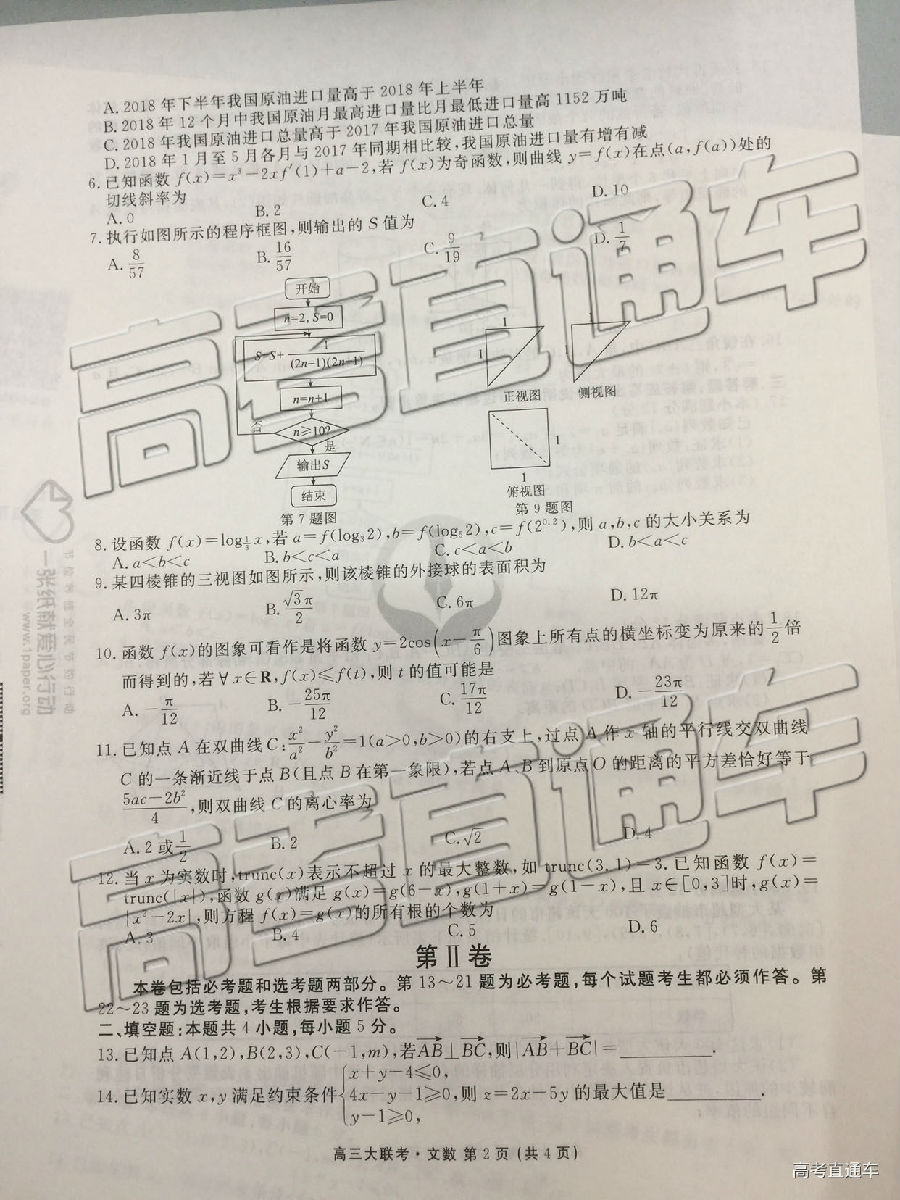 A. 2018 年下半年我国原油进口量高于 2018 年上半年
B. 2018 年 12 个月中我国原油月最高进口量比月最低进口量高 1152 万吨
C. 2018 年我国原油进口总量高于 2017 年我国原油进口总量
D. 2018 年 1 月至 5 月各月与 2017 年同期相比较,我国原油进口量有增有减
6. 已知函数 f(x)=x³-2xf′(1)+a-2,若 f(x)为奇函数,则曲线 y=f(x)在点(a,f(a))处的
切线斜率为
A. 0 B. 2 C. 4 D. 10
7. 执行如图所示的程序框图,则输出的 S 值为
A. 8/57 B. 16/57 C. 9/19 D. 1/7
开始
n=2, S=0
S=S+1/((2n-1)(2n+1))
n=n+1
n≥10?
否
是
输出S
结束
第 7 题图
1
1
正视图
侧视图
1
1
俯视图
第 9 题图
8. 设函数 f(x)=log_{1/3}x,若 a=f(log₃2),b=f(log₅2),c=f(2^{0.2}),则 a,b,c 的大小关系为
A. a<b<c B. b<c<a C. c<a<b D. b<a<c
9. 某四棱锥的三视图如图所示,则该棱锥的外接球的表面积为
A. 3π B. √3π/2 C. 6π D. 12π
10. 函数 f(x)的图象可看作是将函数 y=2cos(x-π/6)图象上所有点的横坐标变为原来的1/2倍
而得到的,若∀x∈R,f(x)≤f(t),则 t 的值可能是
A. -π/12 B. -25π/12 C. 17π/12 D. -23π/12
11. 已知点 A 在双曲线 C:x²/a²-y²/b²=1(a>0,b>0)的右支上,过点 A 作 x 轴的平行线交双曲线
C 的一条渐近线于点 B(且点 B 在第一象限),若点 A、B 到原点 O 的距离的平方差恰好等于
(5ac-2b²)/4,则双曲线 C 的离心率为
A. 2 或1/2 B. 2 C. √2 D. 4
12. 当 x 为实数时,trunc(x)表示不超过 x 的最大整数,如 trunc(3.1)=3. 已知函数 f(x)=
trunc(|x|),函数 g(x)满足 g(x)=g(6-x),g(1+x)=g(1-x),且 x∈[0,3]时,g(x)=
|x²-2x|,则方程 f(x)=g(x)的所有根的个数为
A. 3 B. 4 C. 5 D. 6
第Ⅱ卷
本卷包括必考题和选考题两部分。第 13～21 题为必考题,每个试题考生都必须作答。第
22～23 题为选考题,考生根据要求作答。
二、填空题:本题共 4 小题,每小题 5 分。
13. 已知点 A(1,2),B(2,3),C(-1,m),若AB⊥BC,则|AB+BC|=________.
14. 已知实数 x,y 满足约束条件{x+y-4≤0,
4x-y-1≥0,
y-1≥0,
则 z=2x-5y 的最大值是________.
高三大联考·文数 第 2 页 (共 4 页)
一张纸献爱心行动
www.1paper.org
高考直通车
高考直通车
高考直通车